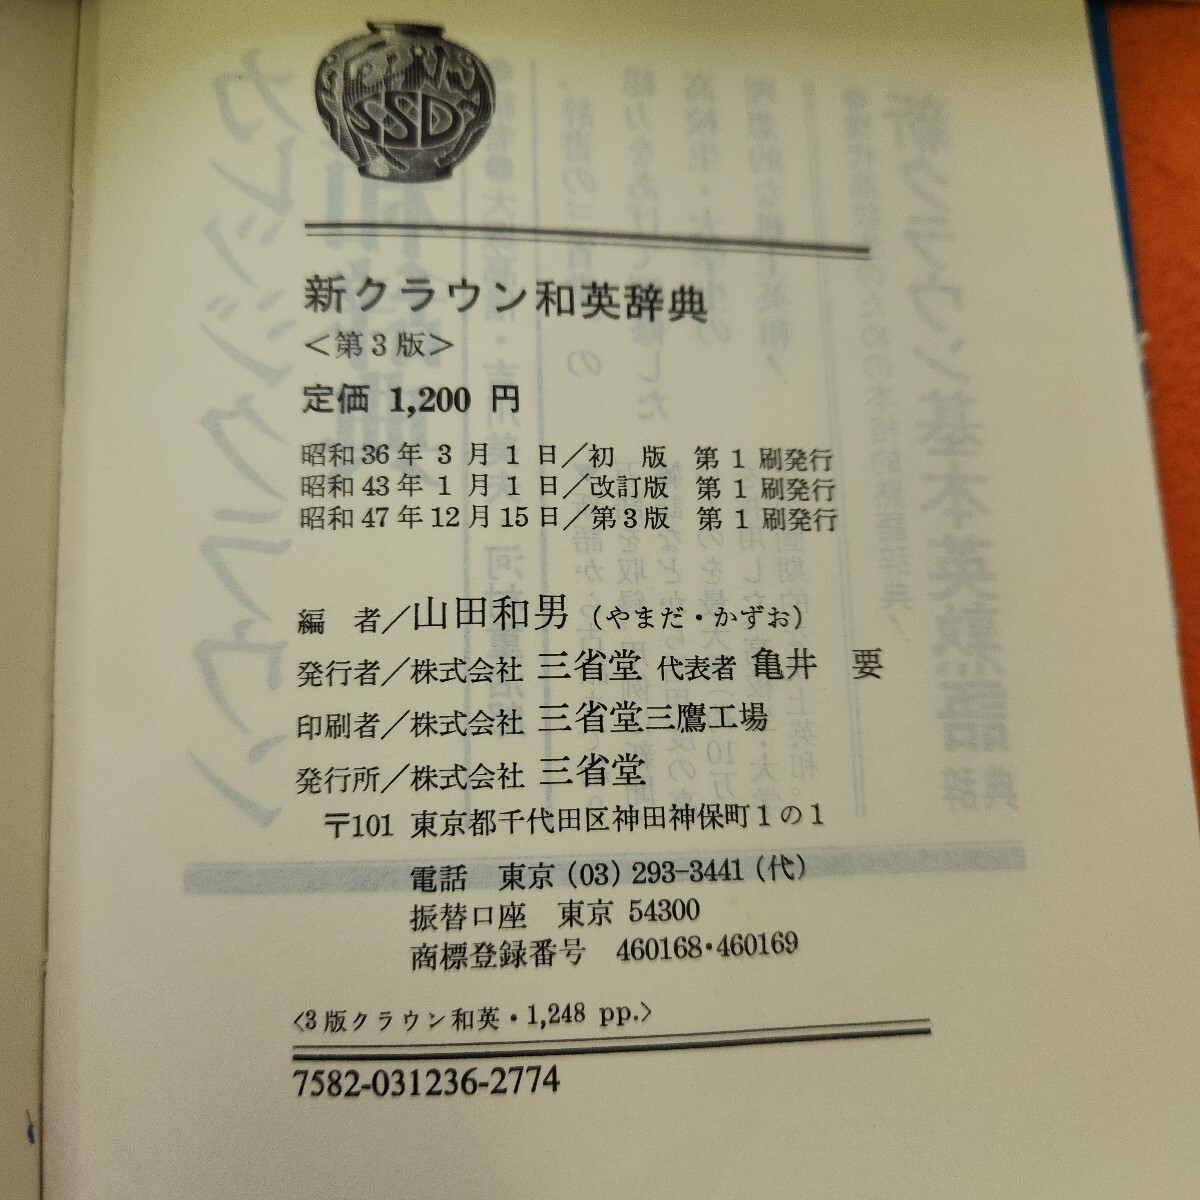 SSD
新クラウン和英辞典
＜第3版＞
定価 1,200 円
昭和36年 3 月 1 日／初 版 第 1 刷発行
昭和43年 1 月 1 日／改訂版 第 1 刷発行
昭和47年12月15日／第3版 第 1 刷発行
編 者／山田和男（やまだ・かずお）
発行者／株式会社 三省堂 代表者 亀井 要
印刷者／株式会社 三省堂三鷹工場
発行所／株式会社 三省堂
〒101 東京都千代田区神田神保町1の1
電話 東京 (03) 293-3441 (代)
振替口座 東京 54300
商標登録番号 460168・460169
〈3版クラウン和英・1,248 pp.〉
7582-031236-2774